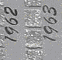 1962
1963